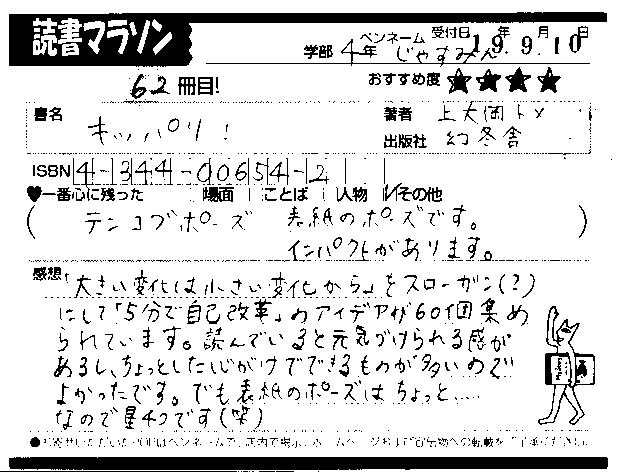 読書マラソン
学部 4年 ペンネーム じゃすみん 受付日 19年9月10日
62冊目! おすすめ度 ★★★★
書名 キッパリ! 著者 上大岡トメ
出版社 幻冬舎
ISBN 4-344-00654-2
♥一番心に残った 場面 ことば 人物 その他
(テンコブポーズ 表紙のポーズです。
インパクトがあります。)
感想 「大きい変化は小さい変化から」をスローガン(?)
にして「5分で自己改革」のアイデアが60個集め
られています。読んでいると元気づけられる感が
あるし、ちょっとした心がけでできるものが多いので
よかったです。でも表紙のポーズはちょっと……
なので星4つです(笑)
●お寄せいただいたPOPはペンネームで、店内で掲示、ホームページおよび宣伝物への転載をご了承ください。